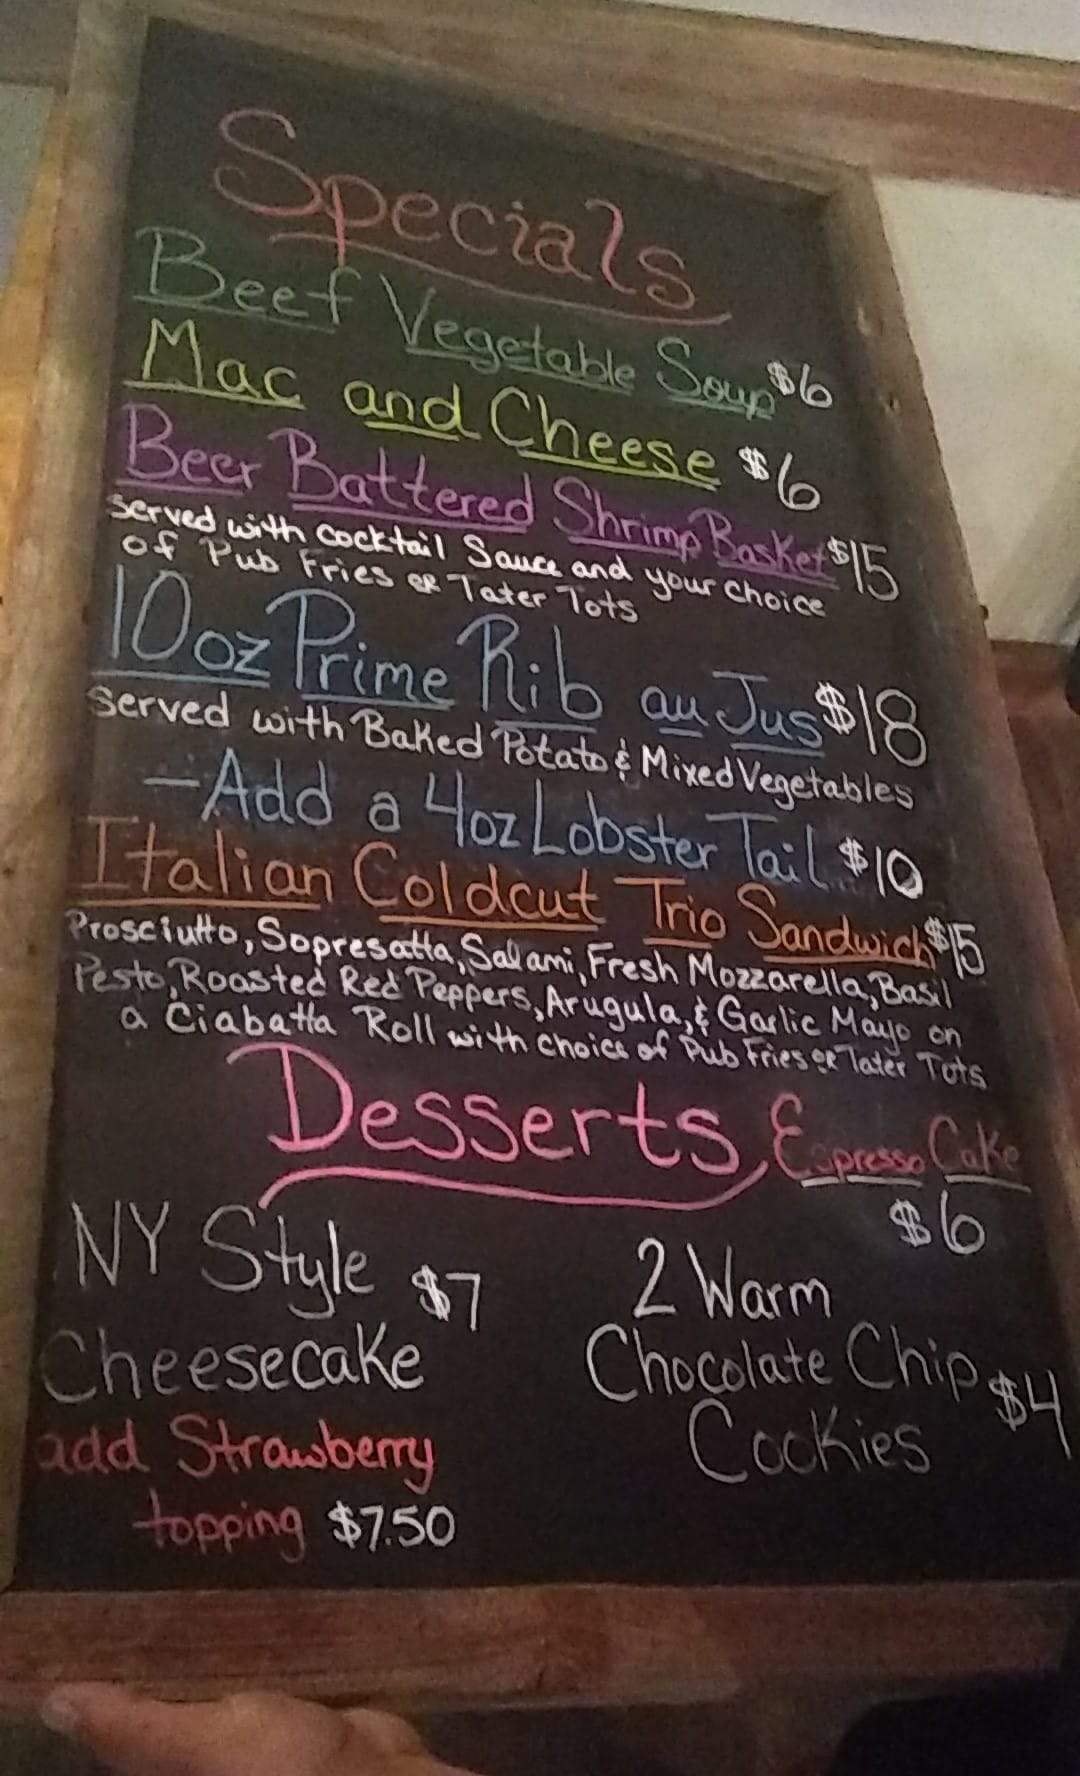 Specials
Beef Vegetable Soup $6
Mac and Cheese $6
Beer Battered Shrimp Basket $15
Served with Cocktail Sauce and your choice
of Pub Fries or Tater Tots
10oz Prime Rib au Jus $18
Served with Baked Potato & Mixed Vegetables
- Add a 4oz Lobster Tail $10
Italian Coldcut Trio Sandwich $15
Prosciutto, Sopresatta, Salami, Fresh Mozzarella, Basil
Pesto, Roasted Red Peppers, Arugula, & Garlic Mayo on
a Ciabatta Roll with choice of Pub Fries or Tater Tots
Desserts
Espresso Cake
$6
NY Style $7
Cheesecake
add Strawberry
topping $7.50
2 Warm
Chocolate Chip $4
Cookies